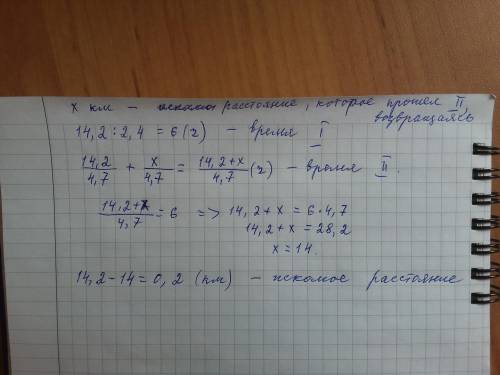 x км – искомое расстояние, которое прошел II,
возвращаясь
14,2 : 2,4 = 6 (ч) – время I
14,2/4,7 + x/4,7 = 14,2+x/4,7 (ч) – время II.
14,2+x/4,7 = 6 => 14,2 + x = 6·4,7
14,2 + x = 28,2
x = 14.
14,2 – 14 = 0,2 (км) – искомое расстояние